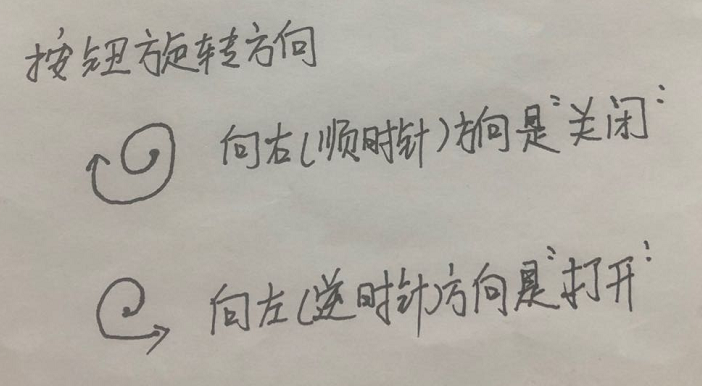 按钮旋转方向
向右(顺时针)方向是"关闭"
向左(逆时针)方向是"打开"